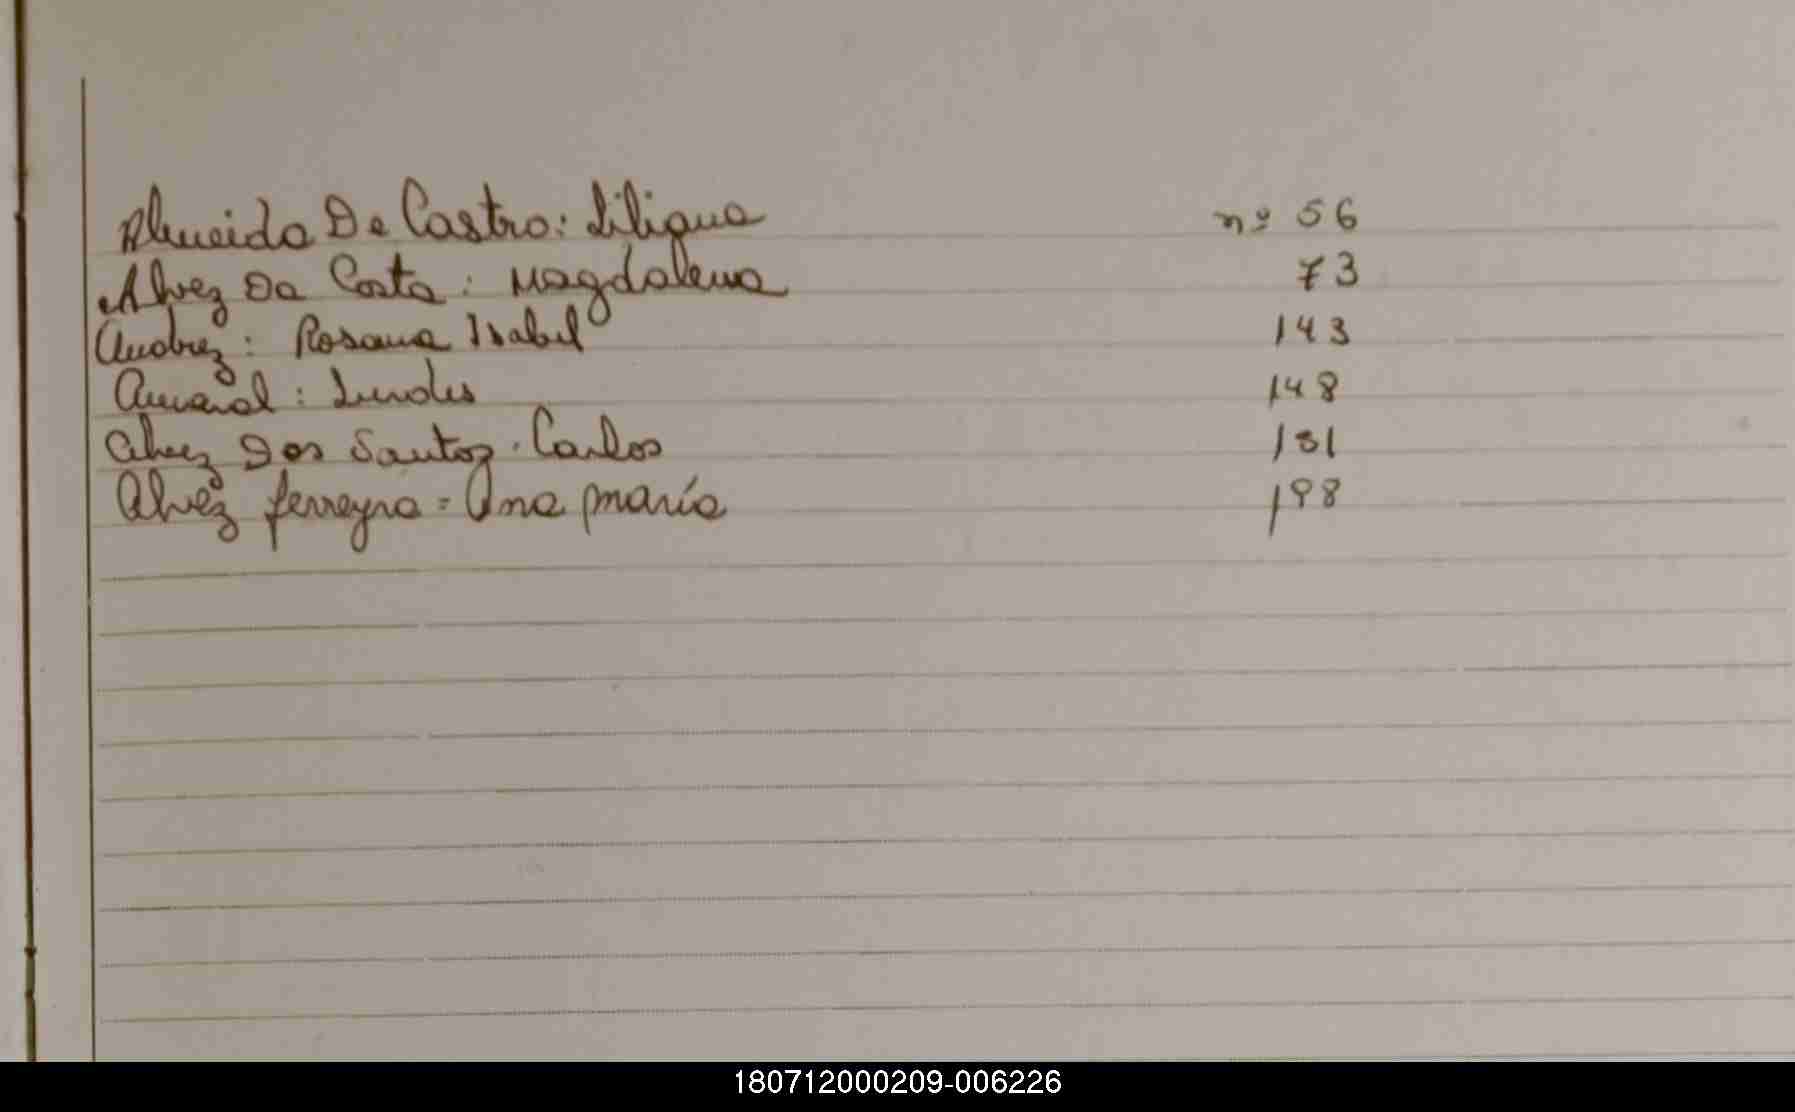 Almeida De Castro: Liliana nº 56
Alvez Da Costa: Magdalena 73
Andrez: Rosana Isabel 143
Amaral: Lurdes 148
Alvez Dos Santoz. Carlos 181
Alvez ferreyra = Ana maría 198
180712000209-006226